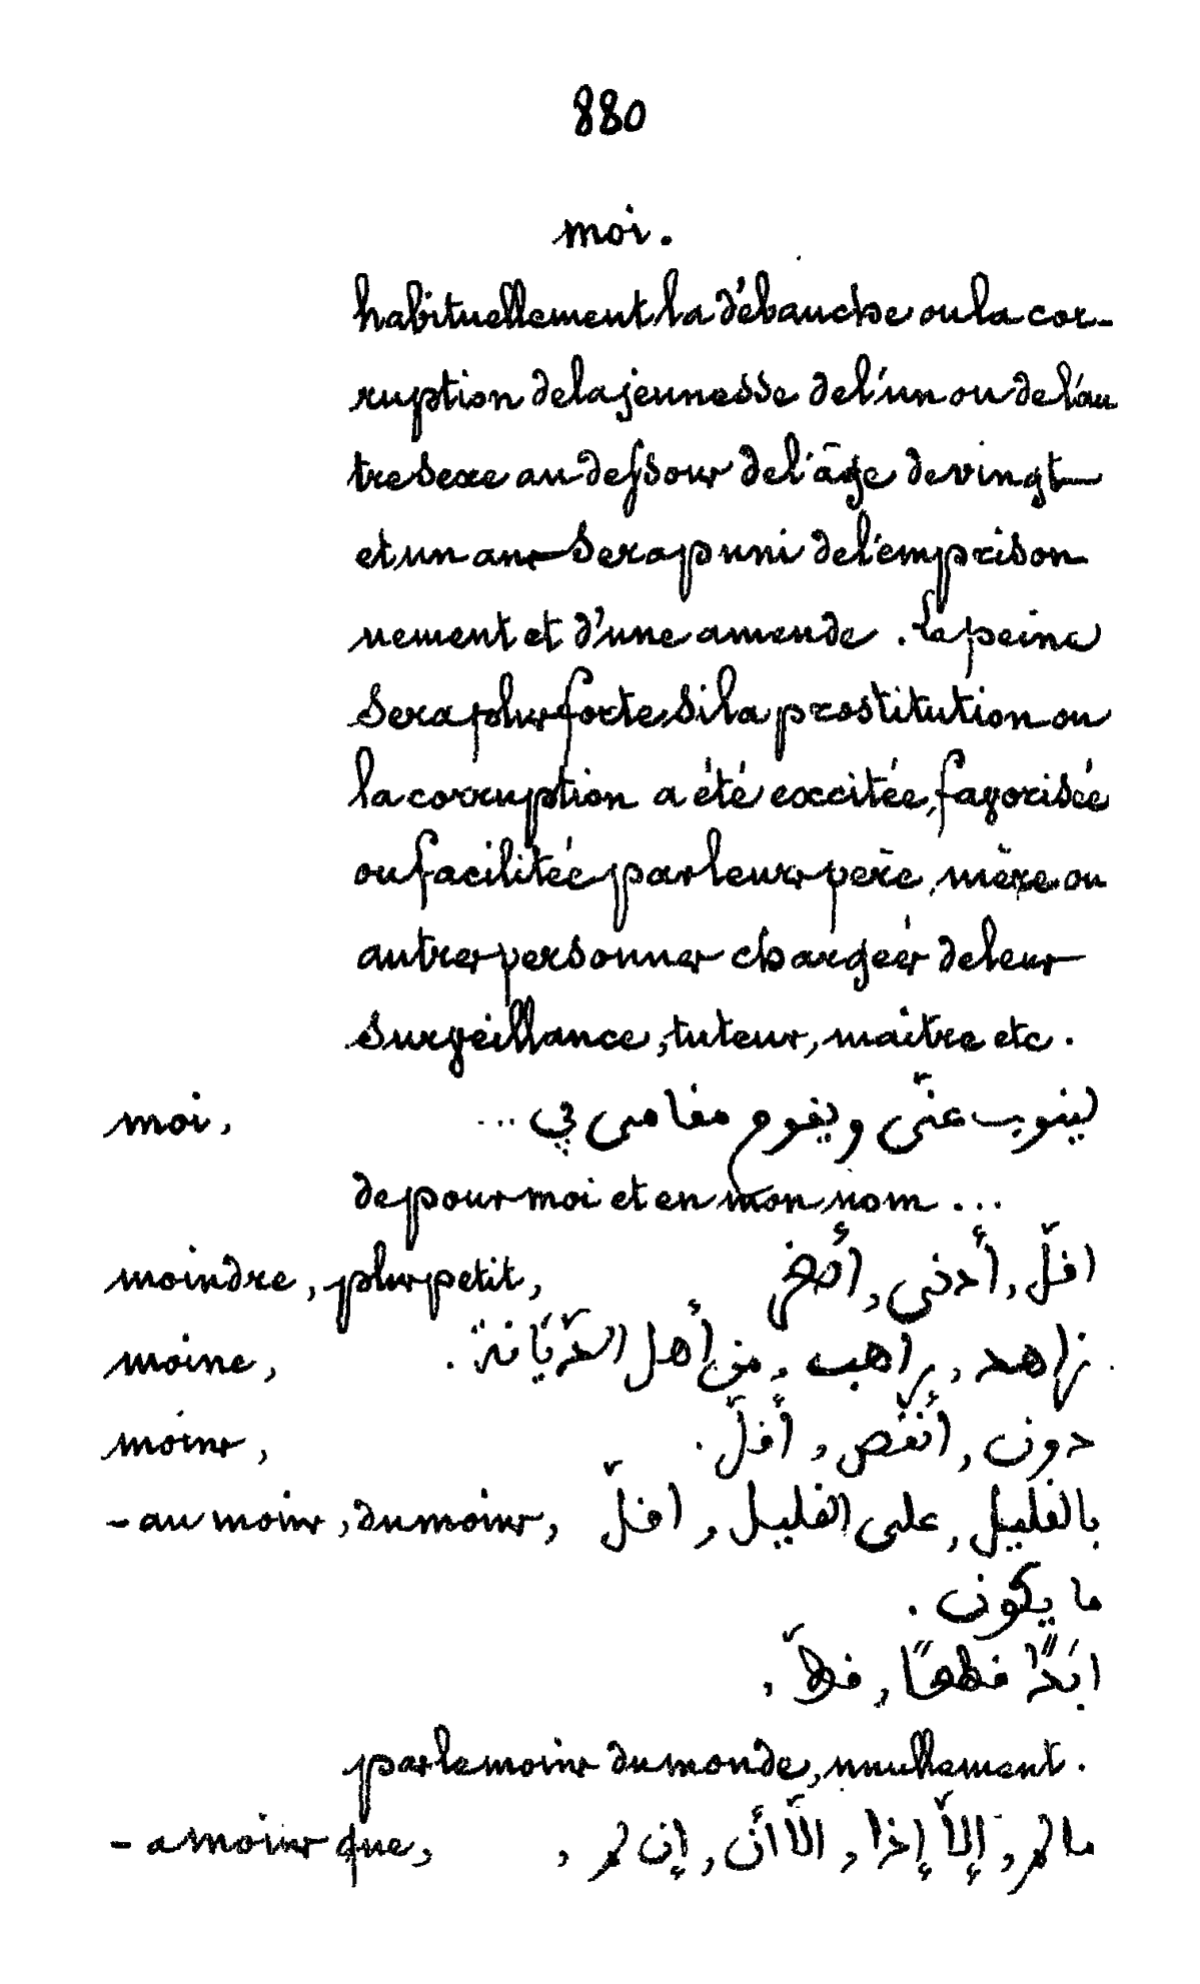 880
moi.
habituellement la débauche ou la cor-
ruption de la jeunesse de l'un ou de l'au
tre sexe au dessous de l'âge de vingt
et un ans sera puni de l'emprison-
nement et d'une amende. La peine
sera plus forte, si la prostitution ou
la corruption a été excitée, favorisée
ou facilitée par leurs père, mère ou
autres personnes chargées de leur
surveillance, tuteur, maître etc.
moi, لينوب عنّي ويقوم مقامي في ...
de pour moi et en mon nom ...
moindre, plus petit, اقلّ, أدنى,
moine, زاهد, راهب, من أهل الدّيَانة.
moins, دون, أنقص, أقلّ.
- au moins, du moins, بالقليل, على القليل, اقلّ
ما يكون.
ابَدًا قطعًا, قطّ,
par le moins du monde, nullement.
- a moins que, ما لم, إلاّ إذا, الاّ أن, إن لم,